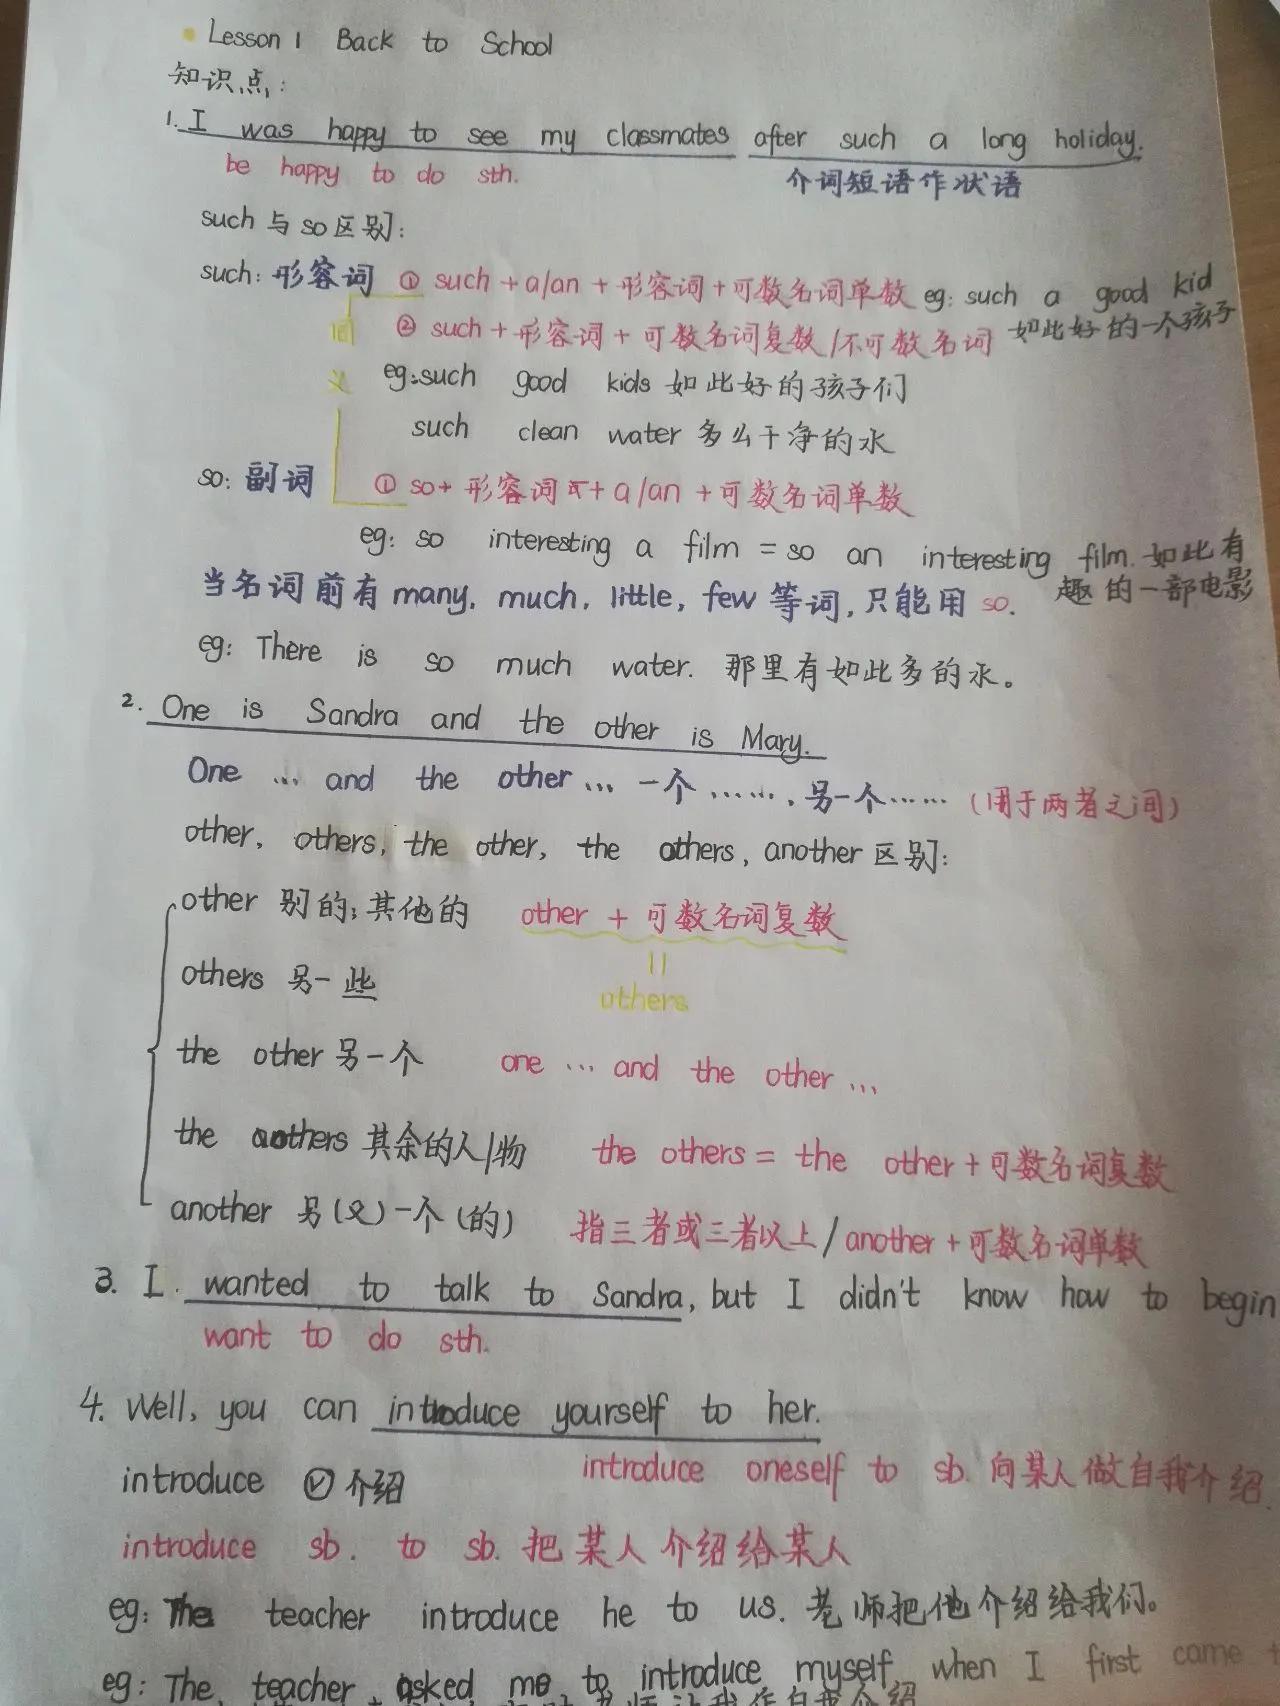 Lesson 1 Back to School
知识点:
1. I was happy to see my classmates after such a long holiday.
be happy to do sth. 介词短语作状语
such 与 so 区别:
such: 形容词 ① such + a/an + 形容词 + 可数名词单数 eg: such a good kid
如此好的一个孩子
同 ② such + 形容词 + 可数名词复数/不可数名词
义 eg: such good kids 如此好的孩子们
such clean water 多么干净的水
so: 副词 ① so + 形容词 + a/an + 可数名词单数
eg: so interesting a film = so an interesting film. 如此有
趣的一部电影
当名词前有 many, much, little, few 等词, 只能用 so.
eg: There is so much water. 那里有如此多的水。
2. One is Sandra and the other is Mary.
One ... and the other ... 一个 ......, 另一个 ...... (用于两者之间)
other, others, the other, the others, another 区别:
other 别的; 其他的 other + 可数名词复数
=
others 另一些 others
the other 另一个 one ... and the other ...
the others 其余的人/物 the others = the other + 可数名词复数
another 另(又)一个(的) 指三者或三者以上/another + 可数名词单数
3. I wanted to talk to Sandra, but I didn't know how to begin
want to do sth.
4. Well, you can introduce yourself to her.
introduce ⓥ 介绍 introduce oneself to sb. 向某人做自我介绍.
introduce sb. to sb. 把某人介绍给某人
eg: The teacher introduce he to us. 老师把他介绍给我们。
eg: The teacher asked me to introduce myself when I first came
老师让我作自我介绍